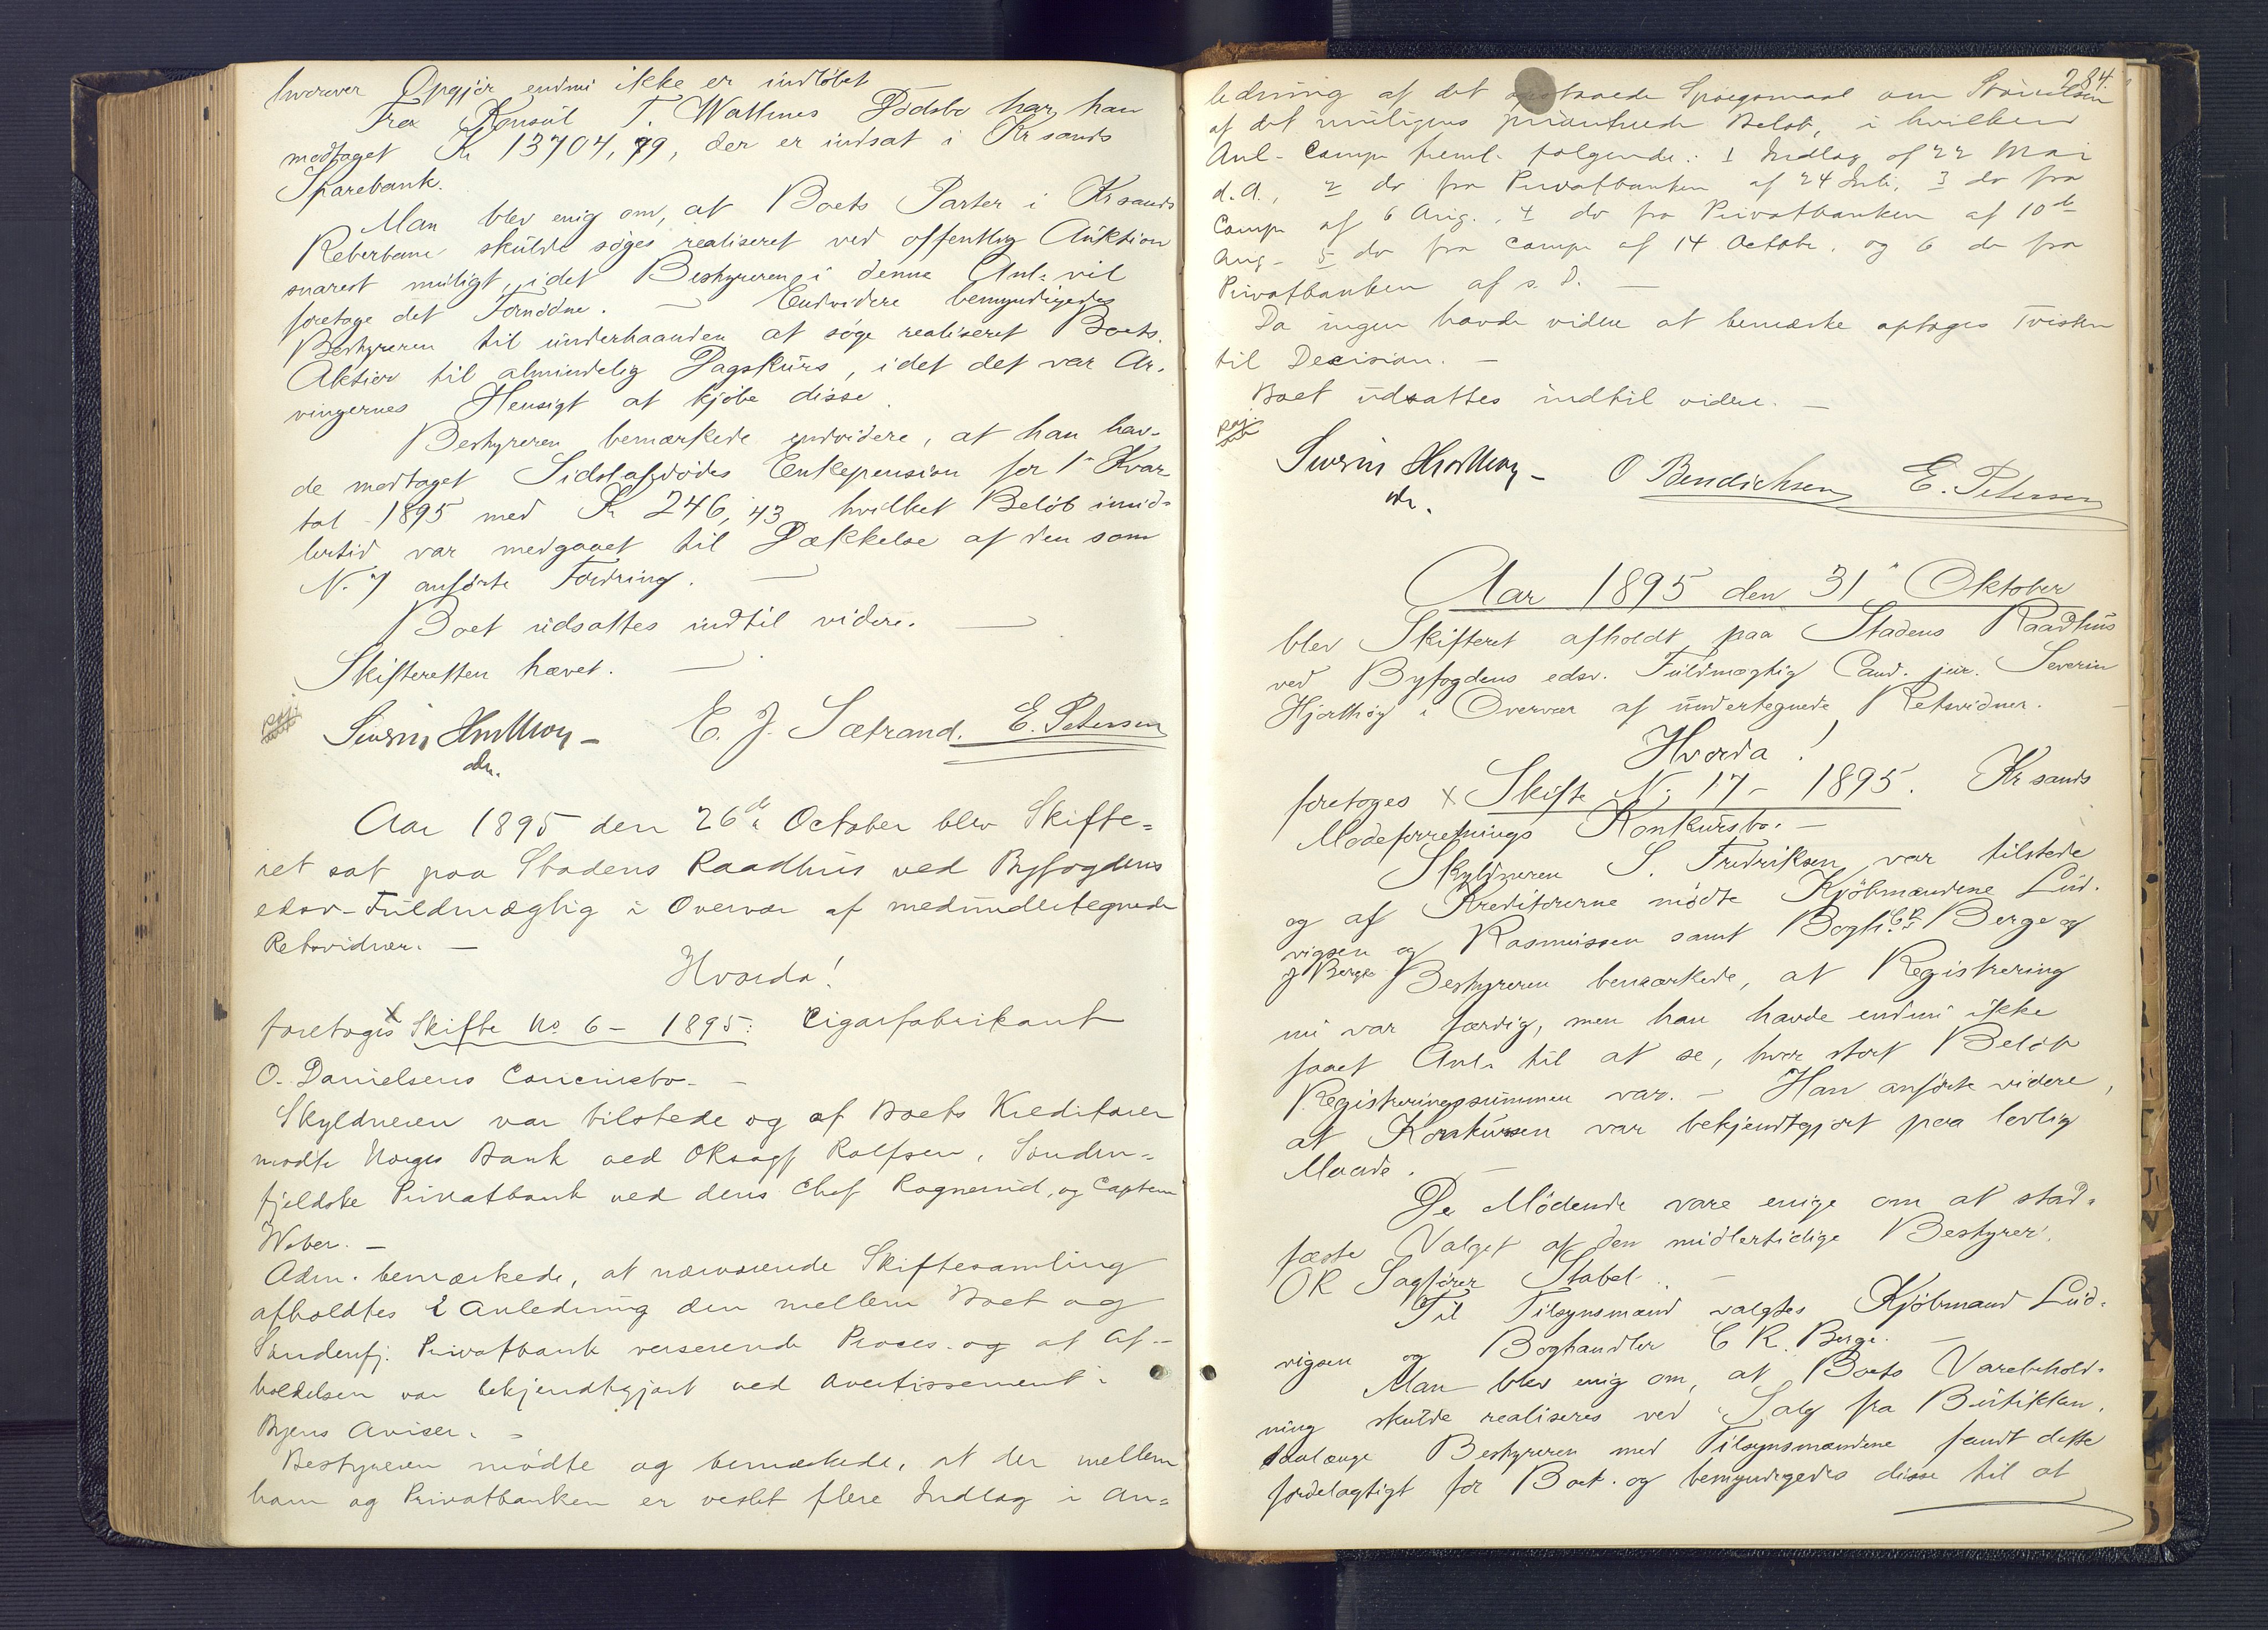 hvorover Opgjør endnu ikke er indløbet
Fra Konsul T. Wattnes Dødsbo har han
modtaget Kr 13704,79, der er indsat i Kr sands
Sparebank.
Man blev enig om, at Boets Parter i Kr sands
Reberbane skulde søges realiseret ved offentlig Auktion
snarest muligt, idet Bestyreren i denne Anl. vil
foretage det Fornødne. — Endvidere bemyndigedes
Bestyreren til underhaanden at søge realiseret Boets
Aktier til almindelig Dagskurs, idet det var Ar-
vingernes Hensigt at kjøbe disse.
Bestyreren bemærkede endvidere, at han hav-
de modtaget Sidstafdødes Enkepension for 1ste Kvar
tal 1895 med Kr 246,43 hvilket Beløb imid-
lertid var medgaaet til Dækkelse af den som
N. 7 anførte Fordring. —
Boet udsattes indtil videre. —
Skifteretten hævet. —
Severin Hjorthøy — E. J. Sætrand. E. Petersen
Aar 1895 den 26de October blev Skifte=
ret sat paa Stadens Raadhus ved Byfogdens
edsv. Fuldmægtig i Overvær af medundertegnede
Retsvidner. —
Hvorda!
foretoges x Skifte No 6 - 1895: Cigarfabrikant
O. Danielsens Concursbo. —
Skyldneren var tilstede og af Boets Kreditorer
mødte Norges Bank ved ORsagf Rolfsen, Sønden=
fjeldske Privatbank ved dens Chef Rognerud, og Captein
Weber. —
Adm. bemærkede, at nærværende Skiftesamling
afholdtes i Anledning den mellem Boet og
Søndenfj. Privatbank verserende Proces og at Af-
holdelsen var bekjendtgjort ved Avertissement i
Byens Aviser. —
Bestyreren mødte og bemærkede, at der mellem
ham og Privatbanken er vexlet flere Indlæg i An=
284.
ledning af det opstaaede Spørgsmaal om Størrelsen
af det muligens prioriterede Beløb, i hvilken
Anl. Comp. freml. følgende: 1 Indlæg af 22 Mai
d.A., 2 do fra Privatbanken af 24 Juli, 3 do fra
Comp af 6 Aug., 4 do fra Privatbanken af 10de
Aug. 5 do fra Comp af 14 Octobr. og 6 do fra
Privatbanken af s. D. —
Da ingen havde videre at bemærke optoges Tvisten
til Decision. —
Boet udsattes indtil videre. —
Severin Hjorthøy — O Bendichsen E. Petersen
Aar 1895 den 31. Oktober
blev Skifteret afholdt paa Stadens Raadhus
ved Byfogdens edsv. Fuldmægtig Cand. jur. Severin
Hjorthøy i Overvær af undertegnede Retsvidner.
Hvorda!
foretoges x Skifte N. 17 - 1895. Kr sands
Modeforretnings Konkursbo. —
Skyldneren S. Fredriksen var tilstede
og af Kreditorerne mødte Kjøbmændene Lud-
vigsen og Rasmussen samt Boghl. C R Berge og
J Berge Bestyreren bemærkede, at Registrering
nu var færdig, men han havde endnu ikke
faaet Anl. til at se, hvor stort Beløb
Registreringssummen var. — Han anførte videre,
at Konkursen var bekjendtgjort paa lovlig
Maade. —
De Mødende vare enige om at stad-
fæste Valget af den midlertidige Bestyrer,
OR Sagfører Stabel. —
Til Tilsynsmænd valgtes Kjøbmand Lud-
vigsen og Boghandler C R. Berge. —
Man blev enig om, at Boets Varebehold-
ning skulde realiseres ved Salg fra Butikken,
saalænge Bestyreren med Tilsynsmændene fandt dette
fordelagtigt for Boet. og bemyndigedes disse til at